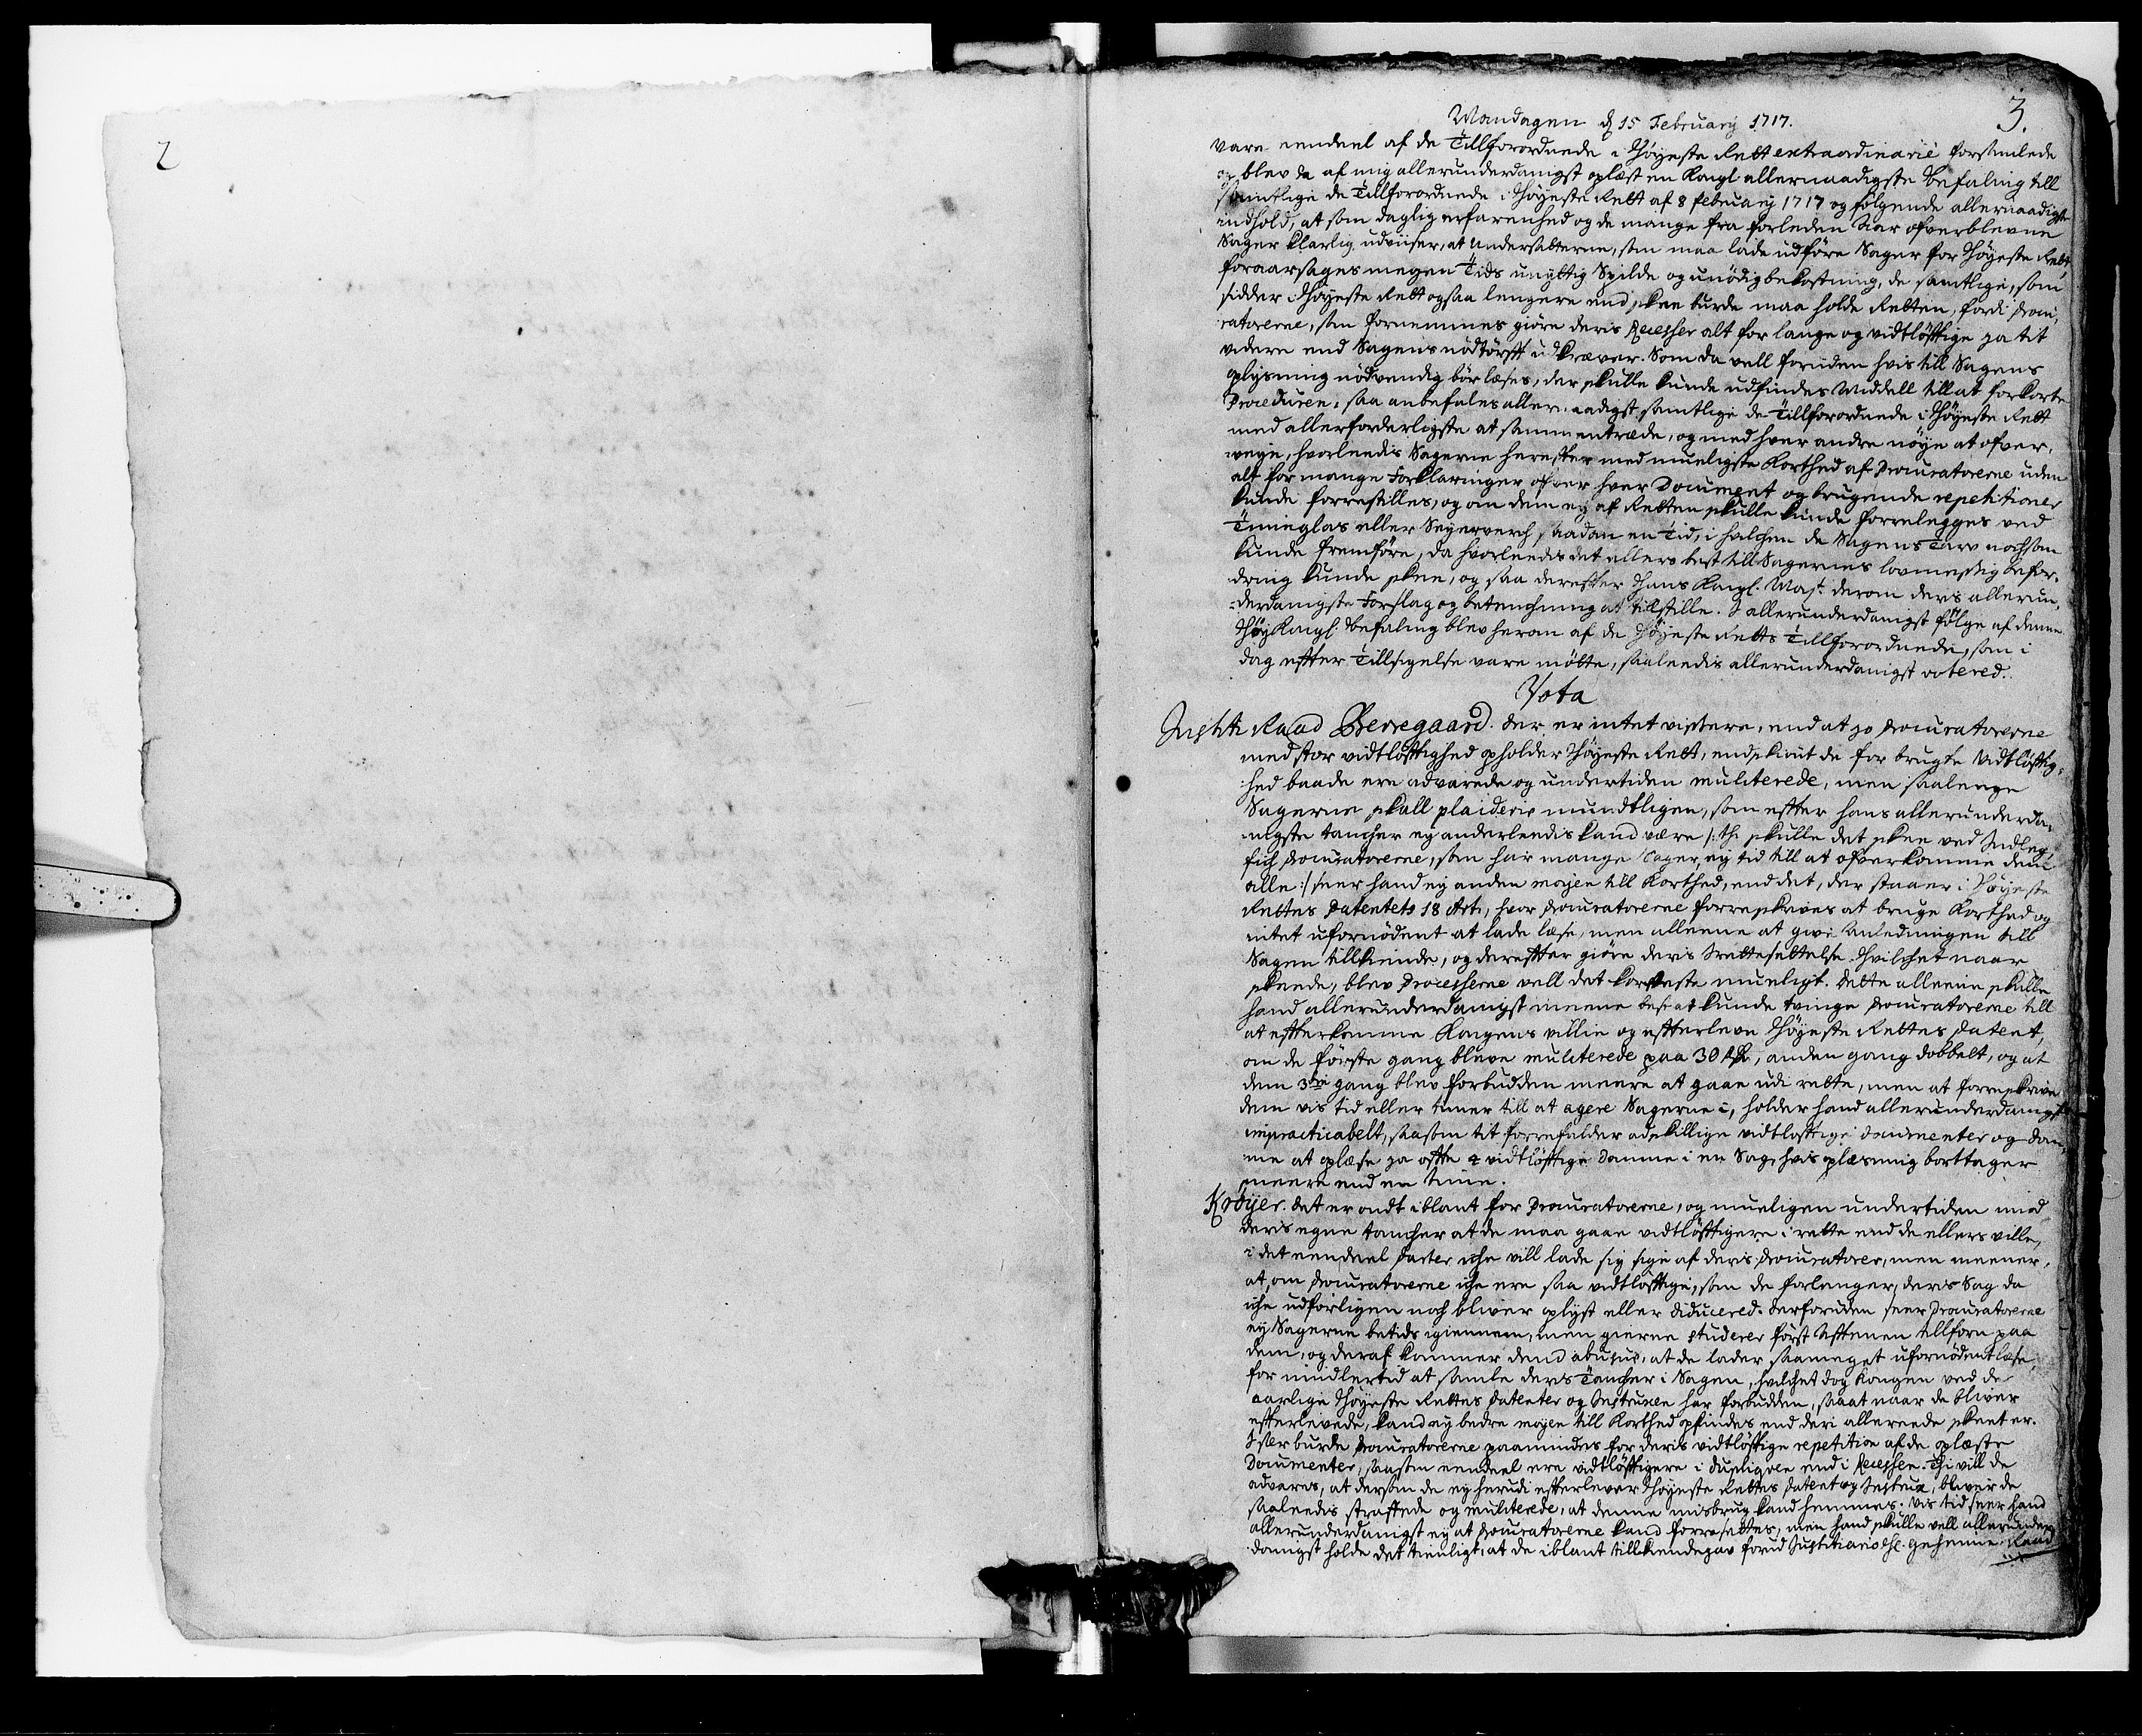 2
3.
Mandagen d 15 February 1717.
vare eendeel af de Tillforordnede i Høyeste Rett extraordinariè forsamlede
og blev da af mig allerunderdanigst oplæst en Kongl allernaadigste Befaling till
samtlige de Tillforordnede i Høyeste Rett af 8 februarij 1717 og følgende allernaadigste
indhold, at som daglig erfarenhed og de mange fra forleden Aar ofverblevne
Sager klarlig udviiser, at Undersatterne, som maa lade udføre Sager for Høyeste Rett,
foraarsages megen Tids unyttig Spilde og unødig bekostning, de samtlige, som
sidder i Høyeste Rett ogsaa lengere end skee burde maa holde Retten, fordi Procu-
ratorerne, som fornemmes giøre deris Recesser alt for lange og vidtløftige ja tit
videre end Sagens nødtørft udkræver. Som da vell foruden hvis till Sagens
oplysning nødvendig bør læses, der skulle kunde udfindes Middell till at forkorte
Proceduren, saa anbefales allernaadigst samtlige de Tillforordnede i Høyeste Rett
med allerforderligste at sammentræde, og med hver andre nøye at ofver-
veye, hvorleedis Sagerne herefter med mueligste Korthed af Procuratorerne uden
alt for mange Forklaringer ofver hver Document og brugende repetitioner
kunde forrestilles, og om dem ey af Retten skulle kunde forrelegges ved
Timeglas eller Seyerverch saadan en Tid, i hvilchen de Sagens Tarv nochsom
kunde fremføre, da hvorleedis det allers best till Sagernes lovmessig befor-
dring kunde skee, og saa derefter Hans Kongl. Mayt. derom deris allerun-
derdanigste Forslag og betenchning at tilstille. I allerunderdanigst følge af denne
Høy Kongl. befaling blev herom af de Høyeste Retts Tillforordnede, som i
dag efter Tillsigelse vare mødte, saaleedis allerunderdanigst votered.
Vota
Justits Raad Benregaard. der er intet vissere, end at jo Procuratorerne
med stor vidtløftighed opholder Høyeste Rett, endskiønt de for brugte Vidtløftig-
hed baade ere advarede og undertiden mulcterede, men saalenge
Sagerne skall plaideris mundtligen, som efter hans allerunderda-
nigste tancher ey anderleedis kand være /: thi skulle det skee ved Indleg,
fich Procuratorerne, som har mange Sager, ey tid till at ofverkomme dem
alle :/ seer hand ey anden moyen till Korthed, end det, der staaer i Høyeste
Rettes Patentets 18 Art, hvor Procuratorerne forreskrives at bruge Korthed og
intet ufornødent at lade læse, men alleene at give Anledningen till
Sagen tillkiende, og derefter giøre deris Irettesettelse. Hvilchet naar
skeede, blev Processerne vell det korteste mueligt. Dette alleene skulle
hand allerunderdanigst meene best at kunde tvinge Procuratorerne till
at efterkomme Kongens villie og efterleve Høyeste Rettes Patent,
om de første gang bleve mulcterede paa 30 Rdr, anden gang dobbelt, og at
dem 3die gang blev forbudden meere at gaae udi rette, men at forreskrive
dem vis tid eller timer till at agere Sagerne i, holder hand allerunderdanigst
impracticabelt, saasom tit forrefalder adskillige vidtløftige documenter og dom-
me at oplæse ja ofte 4 vidtløftige Domme i en Sag, hvis oplæsning borttager
meere end en time.
Krøyer. det er ondt iblant for Procuratorerne, og mueligen undertiden imod
deris egne tancher at de maa gaae vidtløftigere i rette end de ellers ville,
i det eendeel Parter iche vill lade sig sige af deris Procurator, men meener,
at, om Procuratorerne iche ere saa vidtløftige, som de forlanger, deris Sag da
iche udførligen noch bliver oplyst eller diducered. derforuden seer Procuratorerne
ey Sagerne betids igiennem, men gierne studerer først Aftenen tillforn paa
dem, og deraf kommer dend abusus, at de lader saameget ufornødent læse,
for imidlertid at samle deris Tancher i Sagen, hvilchet dog Kongen ved de
aarlige Høyeste Rettes Patenter og Instruxen har forbudden, saaat naar de bliver
efterlevede, kand ey bedre moyen till Korthed opfindes end deri allereede skeet er.
Ister burde Procuratorerne paamindes for deris vidtløftige repetition af de oplæste
Documenter, saasom eendeel ere vidtløftigere i dupliqven end i Recessen. Thi vill de
advares, at dersom de ey herudi efterlever Høyeste Rettes Patent og Instrux, bliver de
saaleedis straffede og mulcterede, at denne misbrug kand hemmes. Vis tid seer hand
allerunderdanigst ey at Procuratorerne kand forresettes, men hand skulle vell allerunder-
danigst holde det tienligt, at de iblant tillkiendegav forud Justitiario Hr. geheime Raad